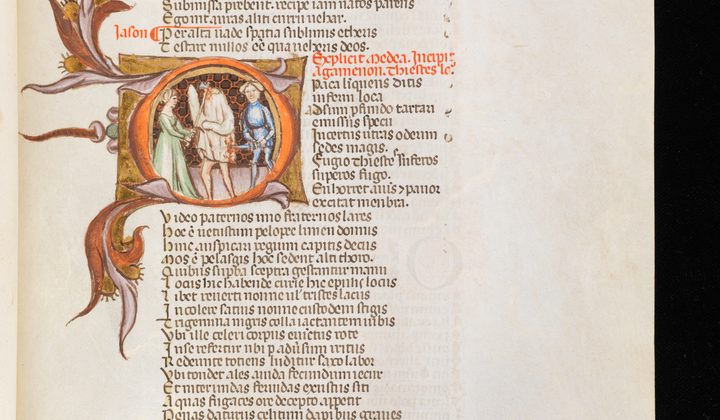 Submissa prebent. recipe iam natos parens
Ego inter auras aliti curru vehar.
Jason Per alta vade spatia sublimis etheris
Testare nullos ee qua veheris deos.
Explicit Medea. Incipit
Agamenon. Thiestes lo.
Opaca liquens ditis
inferni loca
Adsum profundo tartari
emissus specu
Incertus utras oderim
sedes magis.
Fugio thiestes inferos
superos fugo.
En horret animus & pavor
excitat membra.
Video paternos immo fraternos lares
hoc e vetustum pelopee limen domus
hinc auspicari regium capitis decus
Mos e pelasgis hoc sedent alti thoro.
Quibus superba sceptra gestantur manu
Locus hic habende curie hic epulis locus
Libet reverti nonne vel tristes lacus
Incolere satius nonne custodem stigis
Trigemina nigris colla iactantem iubis
Ubi ille celeri corpus evinctus rote
In se refertur ubi per adversum irritus
Redeunte totiens luditur saxo labor
Ubi tondet ales avida fecundum iecur
Et inter undas fervidas exustus siti
Aquas fugaces ore decepto appetit
Penas daturus celitum dapibus graves